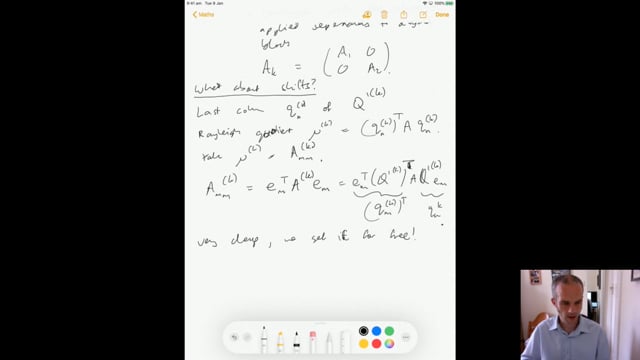 9:41 am Tue 9 Jan
100%
Maths
Done
applied separately to a
block
A_k = ( A_1 0
0 A_2 ).
What about shifts?
Last column q_m^(k) of Q'^(k)
Rayleigh quotient μ^(k) = (q_m^(k))^T A q_m^(k).
take μ^(k) = A_mm^(k).
A_mm^(k) = e_m^T A^(k) e_m = e_m^T (Q'^(k))^T A Q'^(k) e_m
(q_m^(k))^T q_m^k.
very cheap, we get it for free!